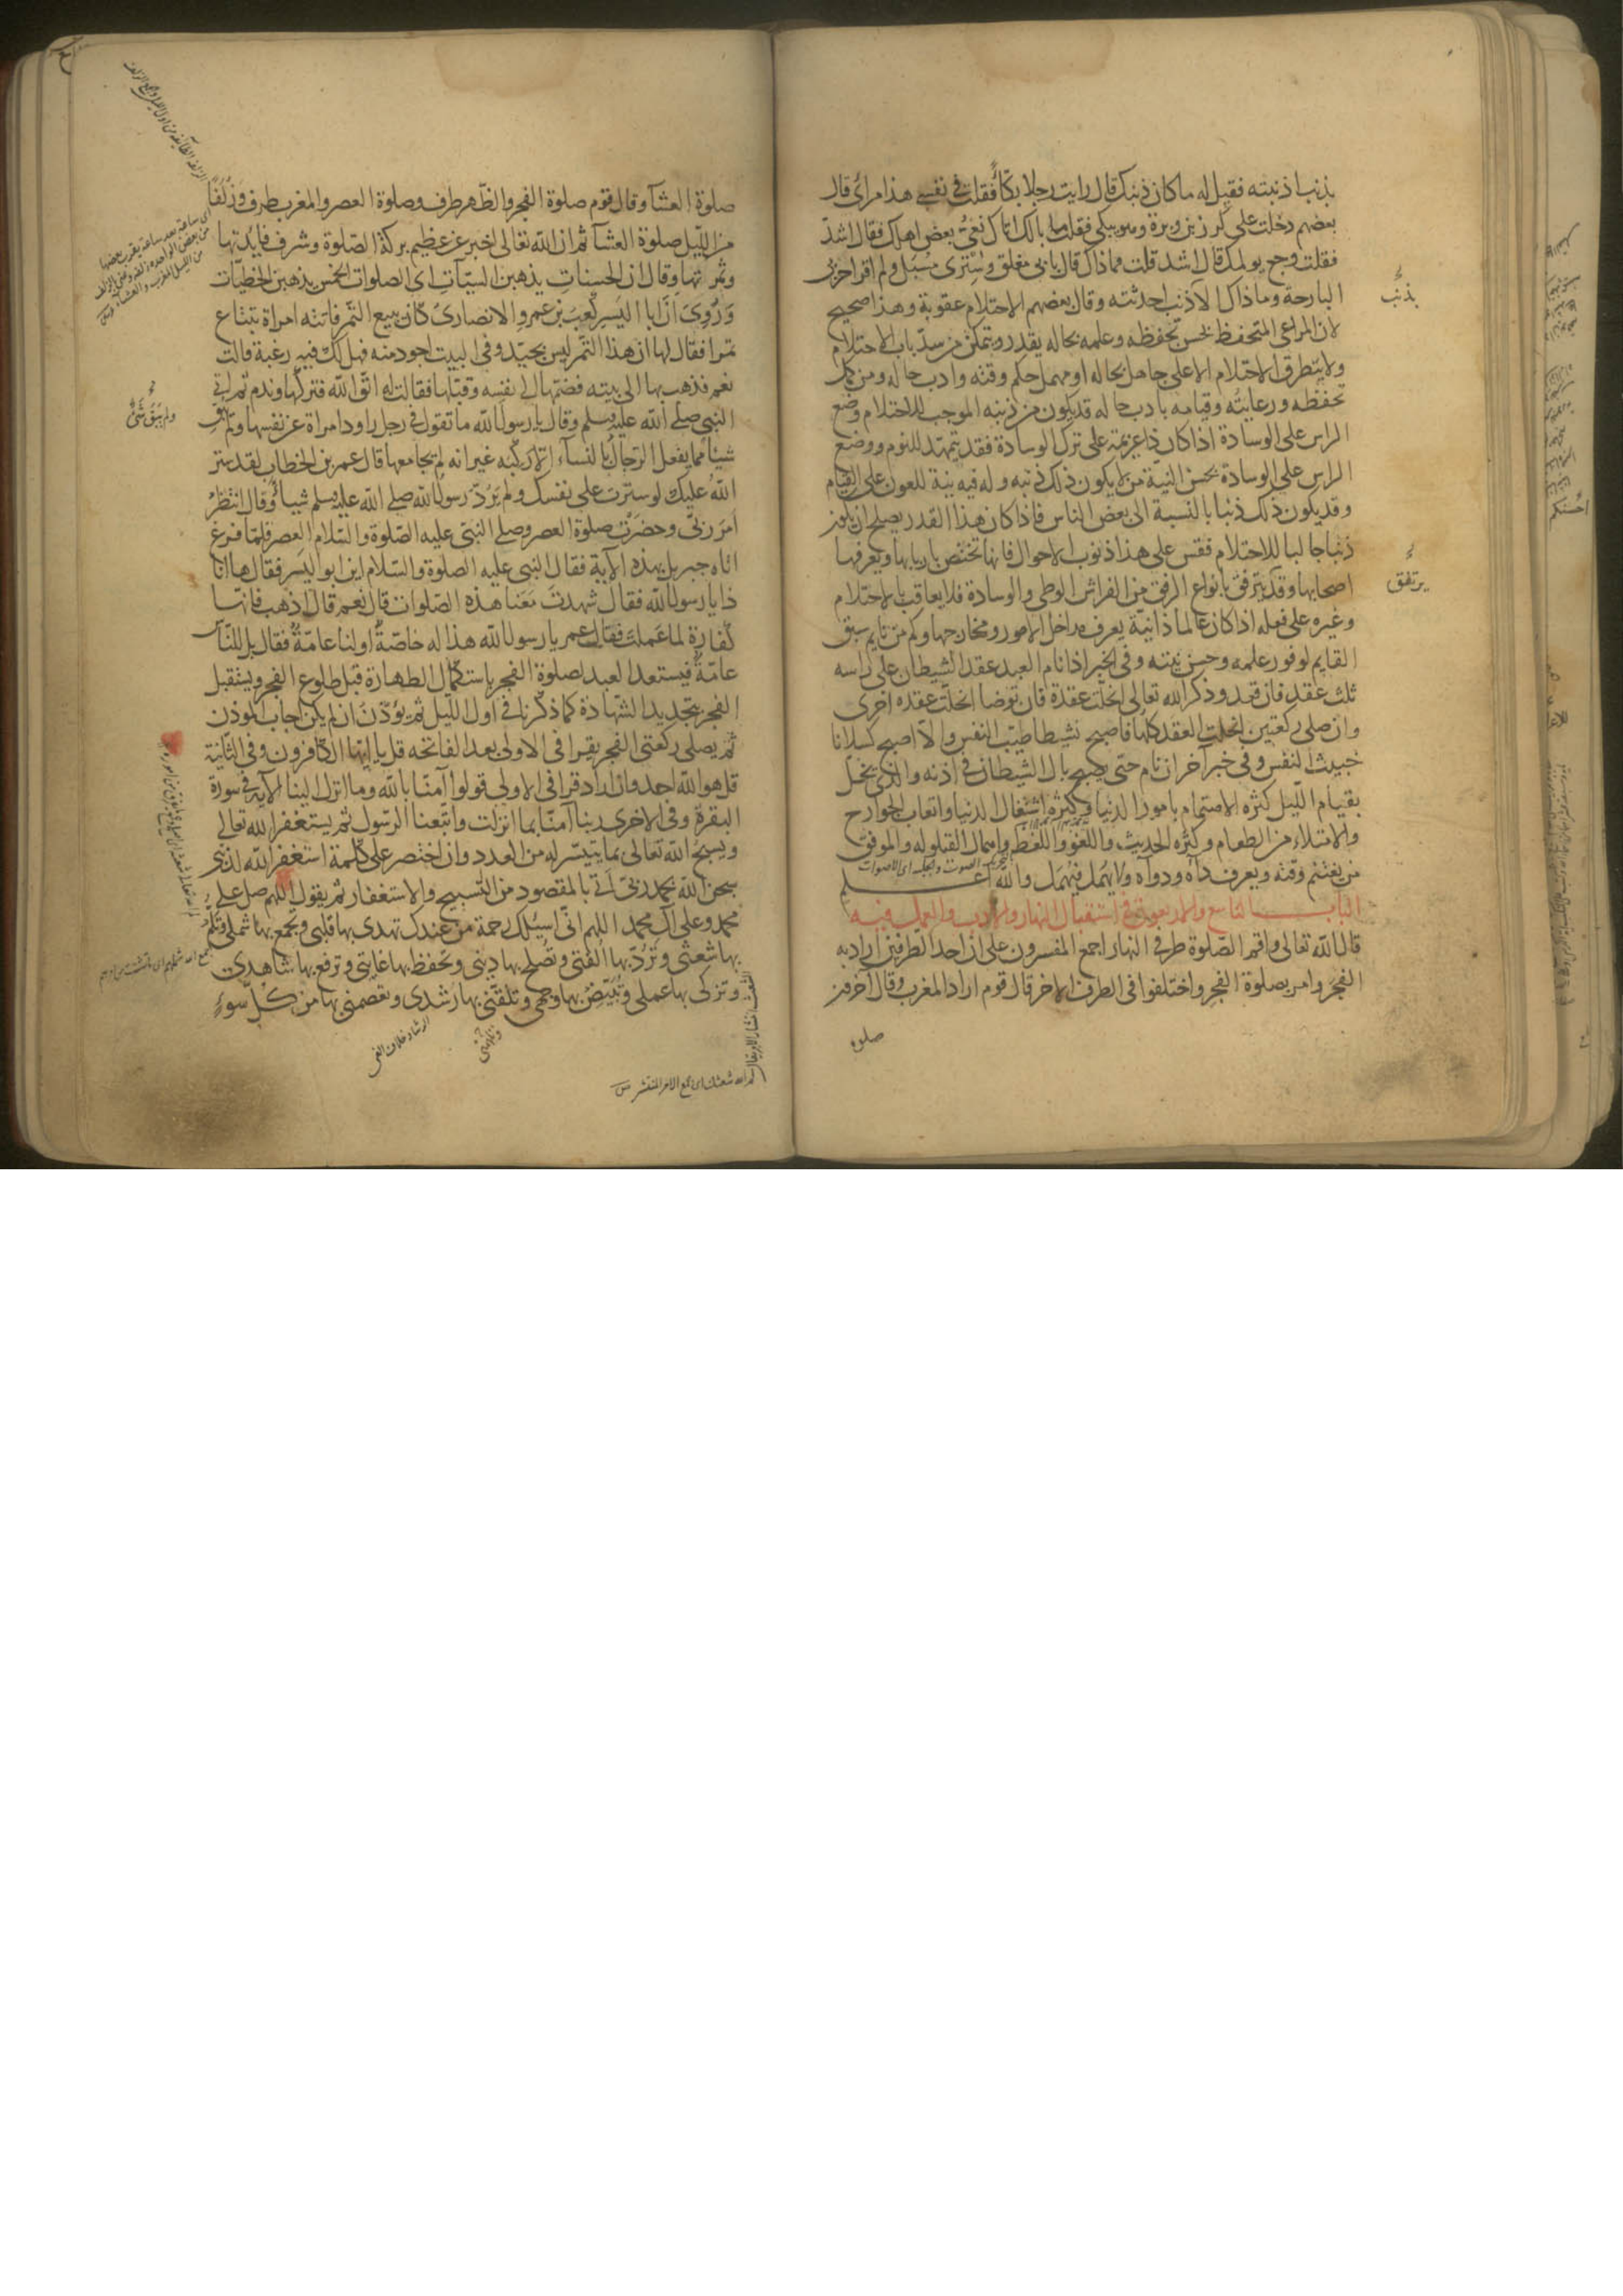 بذنب اذنبته فقيل له ما كان ذنبك قال رايت رجلا بكّاءً فقلت في نفسي هذا مرائ قال
بعضهم دخلت على كرز بن وبرة وهو يبكي فقلت ما بالك اتاك نعيّ بعض اهلك فقال اشدّ
فقلت وجع يولمك قال اشد قلت وما ذاك قال بابي مغلق وستري مسبل ولم اقرا حزبي
البارحة وما ذاك الا ذنب احدثته وقال بعضهم الاحتلام عقوبة وهذا صحيح
لان المراعي المتحفظ بحسن تحفظه وعلمه بحاله يقدر ويتمكن من سدّ باب الاحتلام
ولا يتطرق الاحتلام الا على جاهل بحاله او مهمل حكم وقته وادب حاله ومن كمل
تحفظه ورعايته وقيامه بادب حاله قد يكون من ذنبه الموجب للاحتلام وضع
الراس على الوسادة اذا كان ذا عزيمة على ترك الوسادة فقد يتمهّد للنوم ووضع
الراس على الوسادة بحسن النيّة من لا يكون ذلك ذنبه وله فيه نية للعون على القيام
وقد يكون ذلك ذنبا بالنسبة الى بعض الناس فاذا كان هذا القدر يصلح ان يكون
ذنبا جالبا للاحتلام فقس على هذا ذنوب الاحوال فانها تختص باربابها ويعرفها
اصحابها وقد يترفق بانواع الرفق من الفراش الوطي والوسادة فلا يعاقب بالاحتلام
وغيره على فعله اذا كان عالما ذا نيّة يعرف مداخل الامور ومخارجها وكم من نايم سبق
القايم لوفور علمه وحسن نيته وفي الخبر اذا نام العبد عقد الشيطان على راسه
ثلث عقد فان قعد وذكر الله تعالى انحلّت عقدة فان توضا انحلّت عقده اخرى
وان صلى ركعتين انحلت العقد كلها فاصبح نشيطا طيّب النفس والا اصبح كسلانا
خبيث النفس وفي خبر آخر ان نام حتى يصبح بال الشيطان في اذنه والذي يخلّ
بقيام الليل كثرة الاهتمام بامور الدنيا وكثرة اشتغال الدنيا واتعاب الجوارح
والامتلاء من الطعام وكثرة الحديث واللغو واللغط واهمال القيلوله والموفق
من يغتنم وقته ويعرف داه ودواه ولا يهمل فيهمل والله اعلم
الباب التاسع والاربعون في استقبال النهار والادب والعمل فيه
قال الله تعالى واقم الصّلوة طرفي النهار اجمع المفسرون على ان احد الطرفين اراد به
الفجر وامر بصلوة الفجر واختلفوا في الطرف الاخر قال قوم اراد المغرب وقال آخرون
صلوة
بذنب
يرتفق
صلوة العشآ وقال قوم صلوة الفجر والظّهر طرف وصلوة العصر والمغرب طرف وزلفًا
من الليل صلوة العشآ ثم ان الله تعالى اخبر عن عظيم بركة الصّلوة وشرف فايدتها
وثمرتها وقال ان الحسنات يذهبن السيّآت اى الصلوات الخمس يذهبن الخطيّات
وَرُوِىَ انّ ابا اليَسَر كعب بن عمرو الانصارى كان يبيع التّمر فاتته امراة تبتاع
تمرا فقال لها ان هذا التّمر ليس بجيّد وفي البيت اجود منه فهل لك فيه رغبة قالت
نعم فذهب بها الى بيته فضمّها الى نفسه وقبّلها فقالت له اتّق الله فتركها وندم ثم اتى
النبي صلى الله عليه وسلم وقال يا رسول الله ما تقول في رجل راود امراة عن نفسها ولم يُبق
شيئا مما يفعل الرّجال بالنساء الّا ركبه غير انه لم يجامعها قال عمر بن الخطاب لقد ستر
اللهُ عليك لو سترت على نفسك ولم يَرُدّ رسول الله صلى الله عليه وسلم شيئا وقال انتظر
امر ربّى وحضرت صلوة العصر وصلى النبّى عليه الصّلوة والسّلام العصر فلمّا فرغ
اتاه جبريل بهذه الآية فقال النبي عليه الصلوة والسّلام اين ابو اليَسَر فقال ها انا
ذا يا رسول الله فقال شهدتَ مَعَنا هذه الصّلوات قال نعم قال اذهب فانّها
كفارة لما عملت فقال عمر يا رسول الله هذا له خاصّةً او لنا عامّةً فقال بل للنّاس
عامّة فيستعد العبد لصلوة الفجر باستكمال الطهارة قبل طلوع الفجر ويستقبل
الفجر بتجديد الشهادة كما ذكرنا في اول الليل ثم يؤذّن ان لم يكن اجاب الموذن
ثم يصلى ركعتي الفجر يقرا في الاولى بعد الفاتحه قل يا ايها الكافرون وفي الثانية
قل هو الله احد وان اراد قرا في الاولى قولوا آمنّا بالله وما انزل الينا الآية في سورة
البقرة وفي الاخرى ربنا آمنّا بما انزلت واتّبعنا الرّسول ثم يستغفر الله تعالى
ويسبّح الله تعالى بما يتيسّر له من العدد وان اختصر على كلمة استغفر الله لذنبى
سبحن الله بحمد ربّى اتى بالمقصود من التسبيح والاستغفار ثم يقول اللهم صل على
محمد وعلى آل محمد اللهم انّى اسئلك رحمة من عندك تهدى بها قلبى وتجمع بها شملى وتلمّ
بها شعثى وتردّ بها الفتى وتصلح بها دينى وتحفظ بها غايبتى وترفع بها شاهدى
وتزكى بها عملى وتبيّض بها وجهى وتلقنى بها رشدى وتعصمنى بها من كلّ سوءٍ
ولم يبق شئ
الرشاد خلاف الغى
لم الله شعثك اى جمع الامر المنتشر